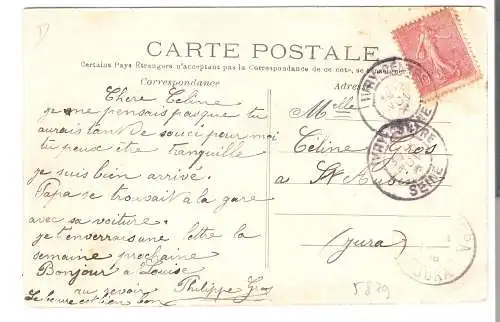 D
CARTE POSTALE
Certains Pays Étrangers n'acceptant pas la Correspondance de ce côté, se renseigner
Correspondance
Adresse
Chere Celine
je ne pensais pas que tu
aurais tant de souci pour moi
tu peux être tranquille
je suis bien arrivé.
Papa se trouvait à la gare
avec sa voiture.
je t'enverrais une lettre la
semaine prochaine
Bonjour à Louise
au revoir Philippe Gros
Le beurre est bien bon
Melle
Céline Gros
a St Aubin
(jura)
IVRY-SEINE
IVRY-SEINE
SEINE
JURA
5879